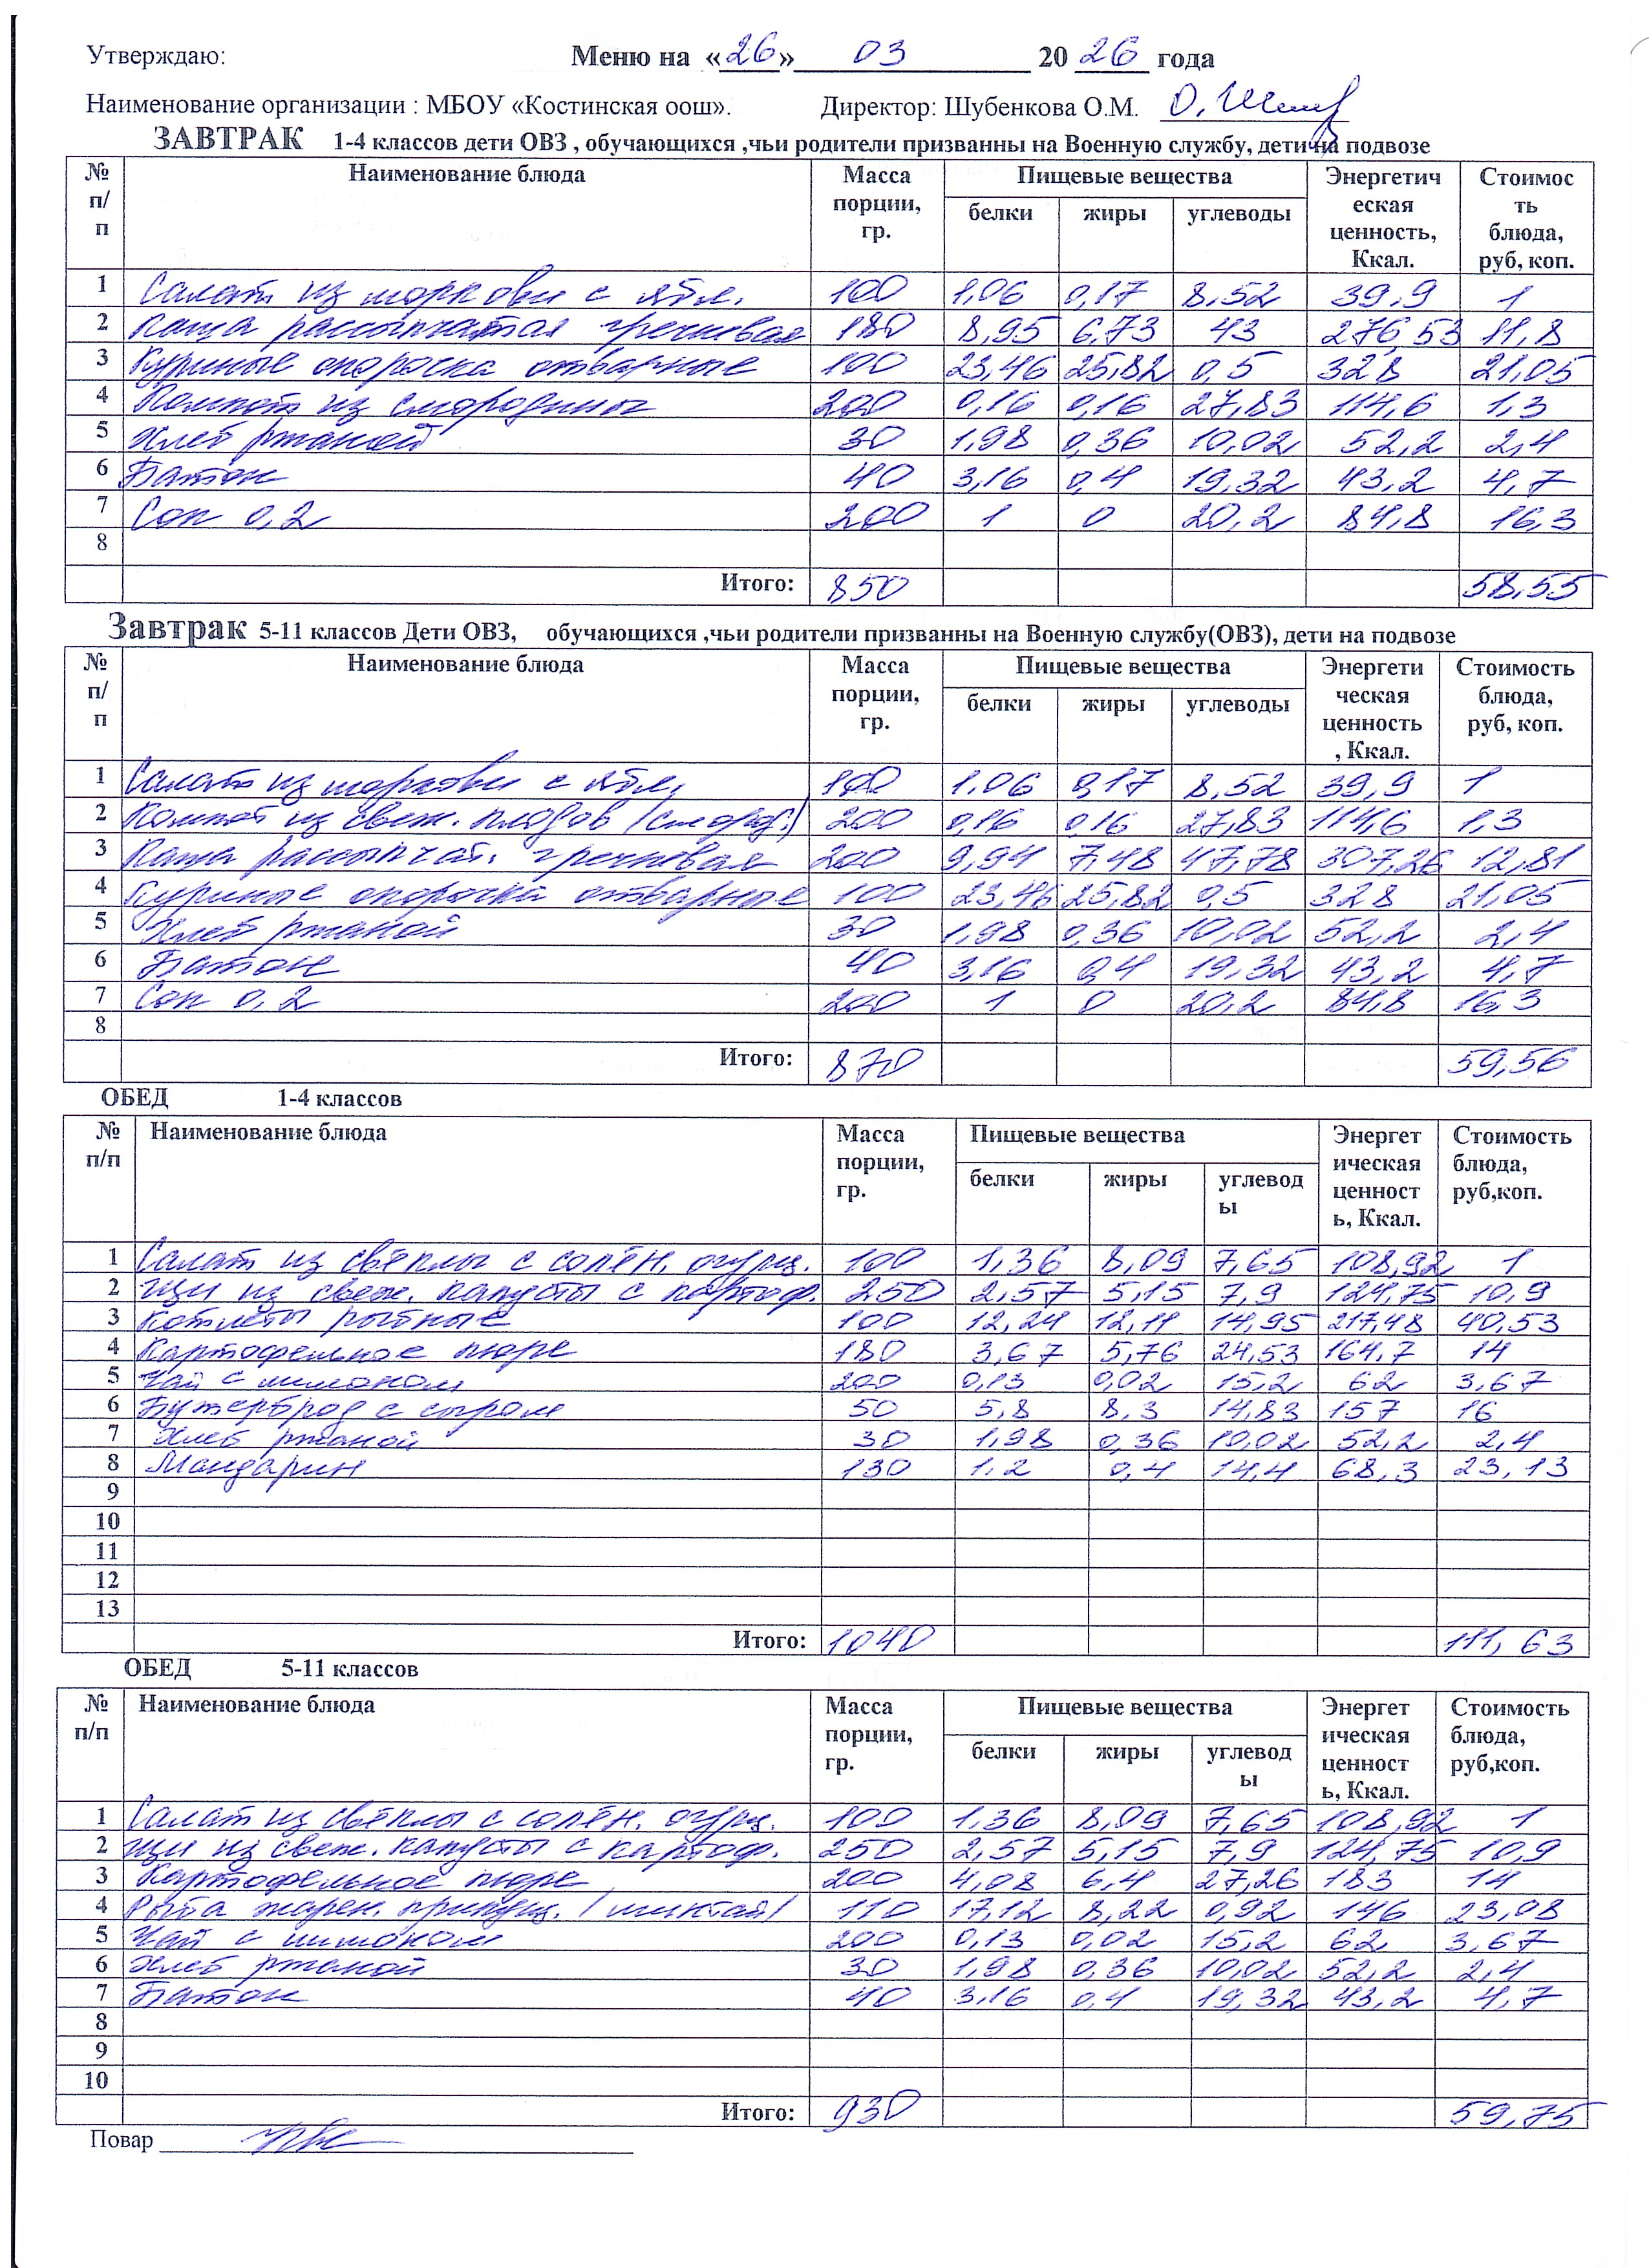 Утверждаю: Меню на «26» 03 20 26 года
Наименование организации : МБОУ «Костинская оош». Директор: Шубенкова О.М.
ЗАВТРАК 1-4 классов дети ОВЗ , обучающихся ,чьи родители призванны на Военную службу, дети на подвозе
№ п/п Наименование блюда Масса порции, гр. Пищевые вещества Энергетическая ценность, Ккал. Стоимость блюда, руб, коп.
белки жиры углеводы
1 Салат из моркови с ябл. 100 1,06 0,17 8,52 39,9 1
2 Каша рассыпчатая гречневая 180 8,95 6,73 43 276,53 11,8
3 Куриные окорочка отварные 100 23,46 25,82 0,5 328 21,05
4 Компот из смородины 200 0,16 0,16 27,83 114,6 1,3
5 Хлеб ржаной 30 1,98 0,36 10,02 52,2 2,4
6 Батон 40 3,16 0,4 19,32 43,2 4,7
7 Сок 0,2 200 1 0 20,2 84,8 16,3
8
Итого: 850 58,55
Завтрак 5-11 классов Дети ОВЗ, обучающихся ,чьи родители призванны на Военную службу(ОВЗ), дети на подвозе
№ п/п Наименование блюда Масса порции, гр. Пищевые вещества Энергетическая ценность, Ккал. Стоимость блюда, руб, коп.
белки жиры углеводы
1 Салат из моркови с ябл. 100 1,06 0,17 8,52 39,9 1
2 Компот из свеж. плодов (смород.) 200 0,16 0,16 27,83 114,6 1,3
3 Каша рассыпчат. гречневая 200 9,94 7,48 47,78 307,26 12,81
4 Куриные окорочка отварные 100 23,46 25,82 0,5 328 21,05
5 Хлеб ржаной 30 1,98 0,36 10,02 52,2 2,4
6 Батон 40 3,16 0,4 19,32 43,2 4,7
7 Сок 0,2 200 1 0 20,2 84,8 16,3
8
Итого: 870 59,56
ОБЕД 1-4 классов
№ п/п Наименование блюда Масса порции, гр. Пищевые вещества Энергетическая ценность, Ккал. Стоимость блюда, руб,коп.
белки жиры углеводы
1 Салат из свёклы с солён. огурц. 100 1,36 8,09 7,65 108,92 1
2 Щи из свеж. капусты с картоф. 250 2,57 5,15 7,9 124,75 10,9
3 Котлеты рыбные 100 12,24 12,11 14,95 217,48 40,53
4 Картофельное пюре 180 3,67 5,76 24,53 164,7 14
5 Чай с лимоном 200 0,13 0,02 15,2 62 3,67
6 Бутерброд с сыром 50 5,8 8,3 14,83 157 16
7 Хлеб ржаной 30 1,98 0,36 10,02 52,2 2,4
8 Мандарин 130 1,2 0,4 14,4 68,3 23,13
9
10
11
12
13
Итого: 1040 111,63
ОБЕД 5-11 классов
№ п/п Наименование блюда Масса порции, гр. Пищевые вещества Энергетическая ценность, Ккал. Стоимость блюда, руб,коп.
белки жиры углеводы
1 Салат из свёклы с солён. огурц. 100 1,36 8,09 7,65 108,92 1
2 Щи из свеж. капусты с картоф. 250 2,57 5,15 7,9 124,75 10,9
3 Картофельное пюре 200 4,08 6,4 27,26 183 14
4 Рыба жарен. припущ. (минтай) 110 17,12 8,22 0,92 146 23,08
5 Чай с лимоном 200 0,13 0,02 15,2 62 3,67
6 Хлеб ржаной 30 1,98 0,36 10,02 52,2 2,4
7 Батон 40 3,16 0,4 19,32 43,2 4,7
8
9
10
Итого: 930 59,75
Повар